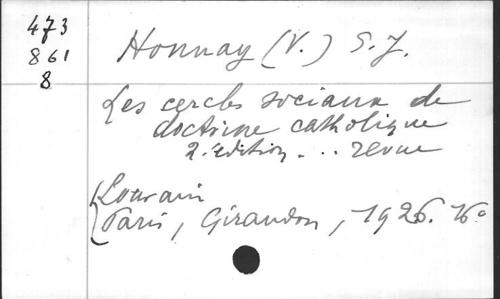 473
861
8
Honnay (V.) S.J.
Les cercles sociaux de
doctrine catholique
2.e édition... revue
Louvain
Paris, Giraudon, 1926. 16°